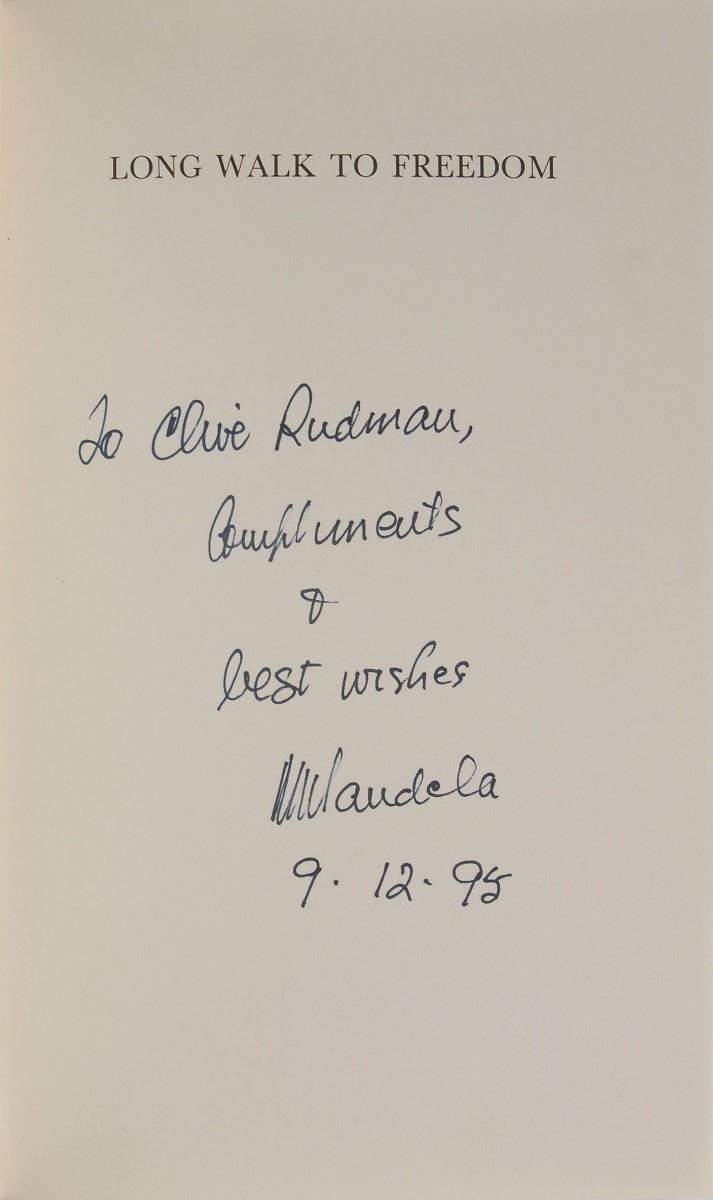 LONG WALK TO FREEDOM
To Clive Rudman,
Compliments
&
best wishes
NMandela
9. 12. 95